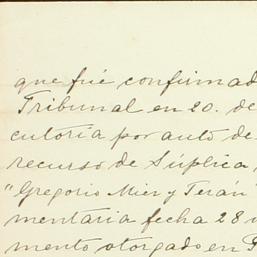 que fué confirmad
Tribunal en 20. de
cutoria por auto de
recurso de Súplica
"Gregorio Mier y Terán"
mentaria fecha 28
mento otorgado en